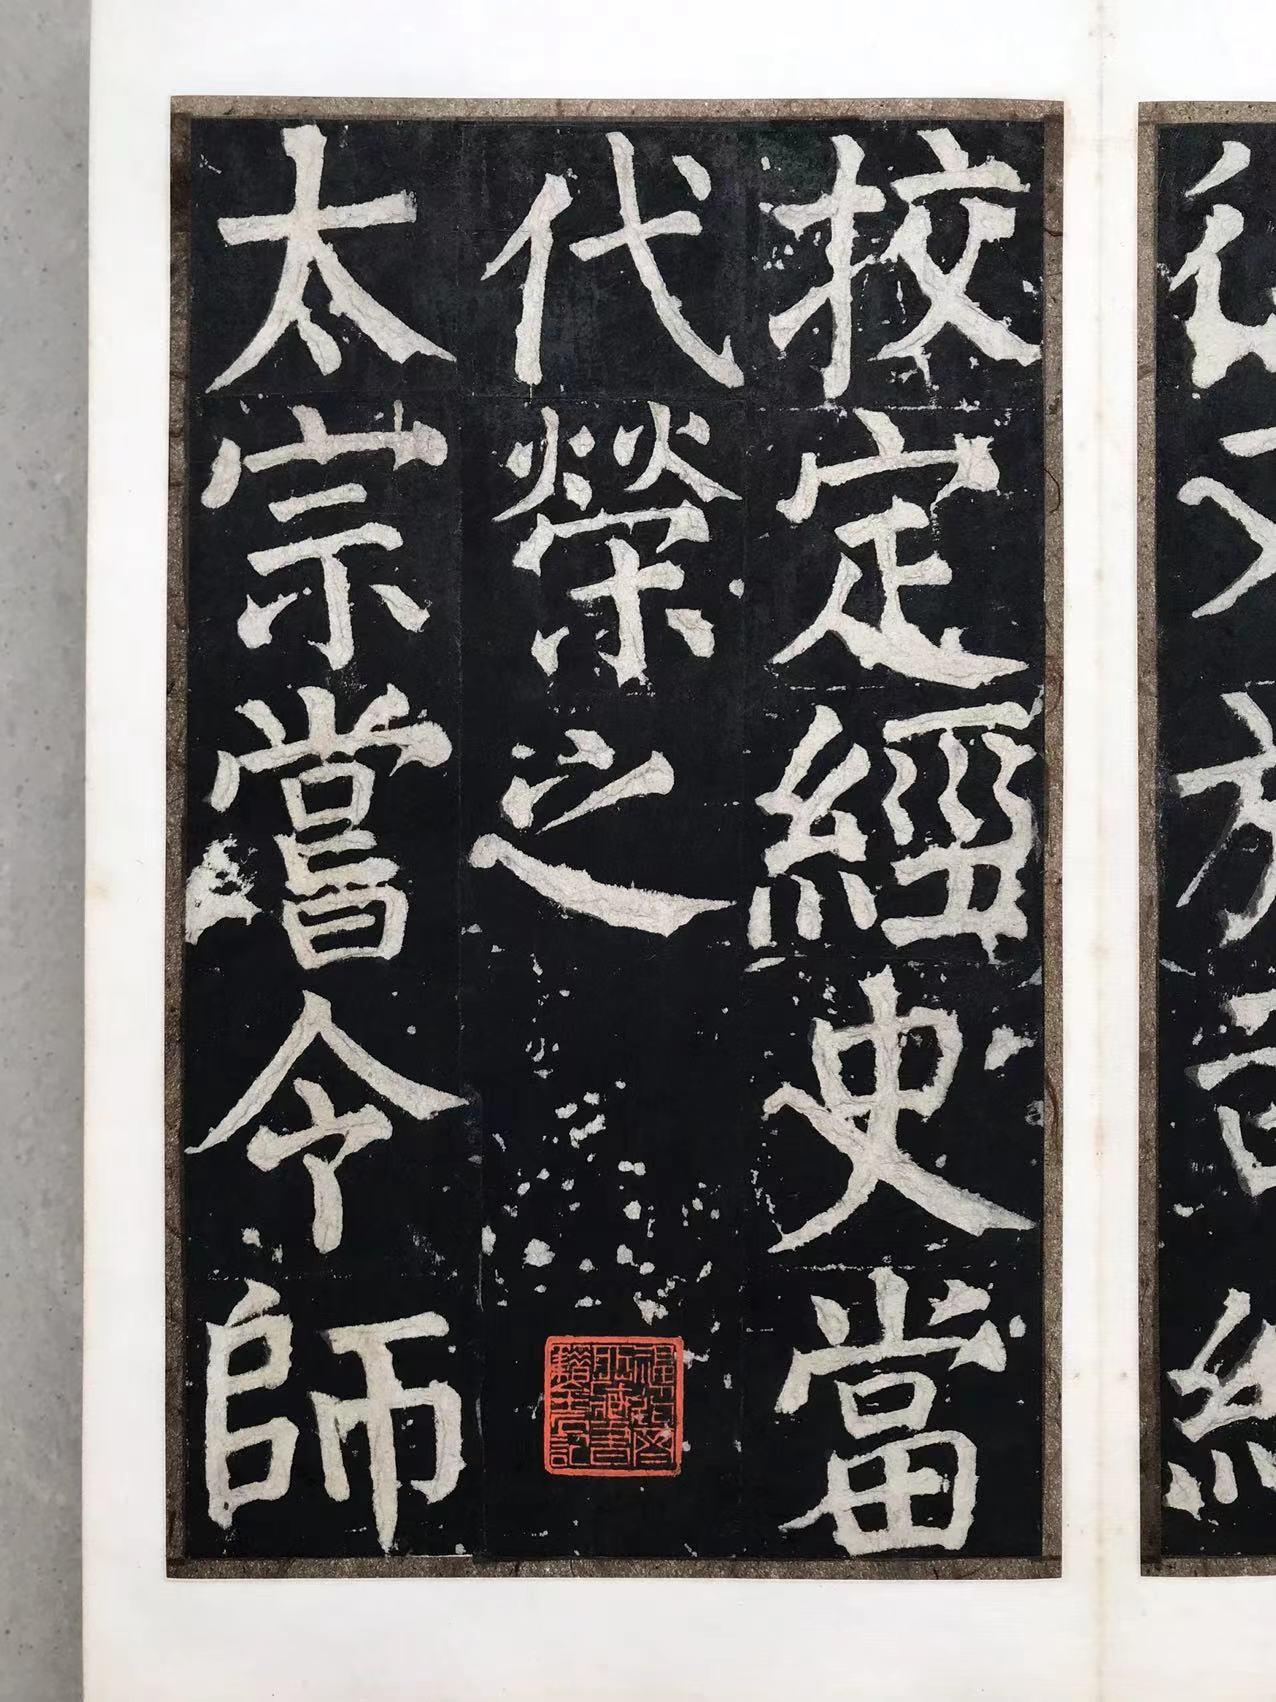 挍定經史當
代榮之
太宗嘗令師